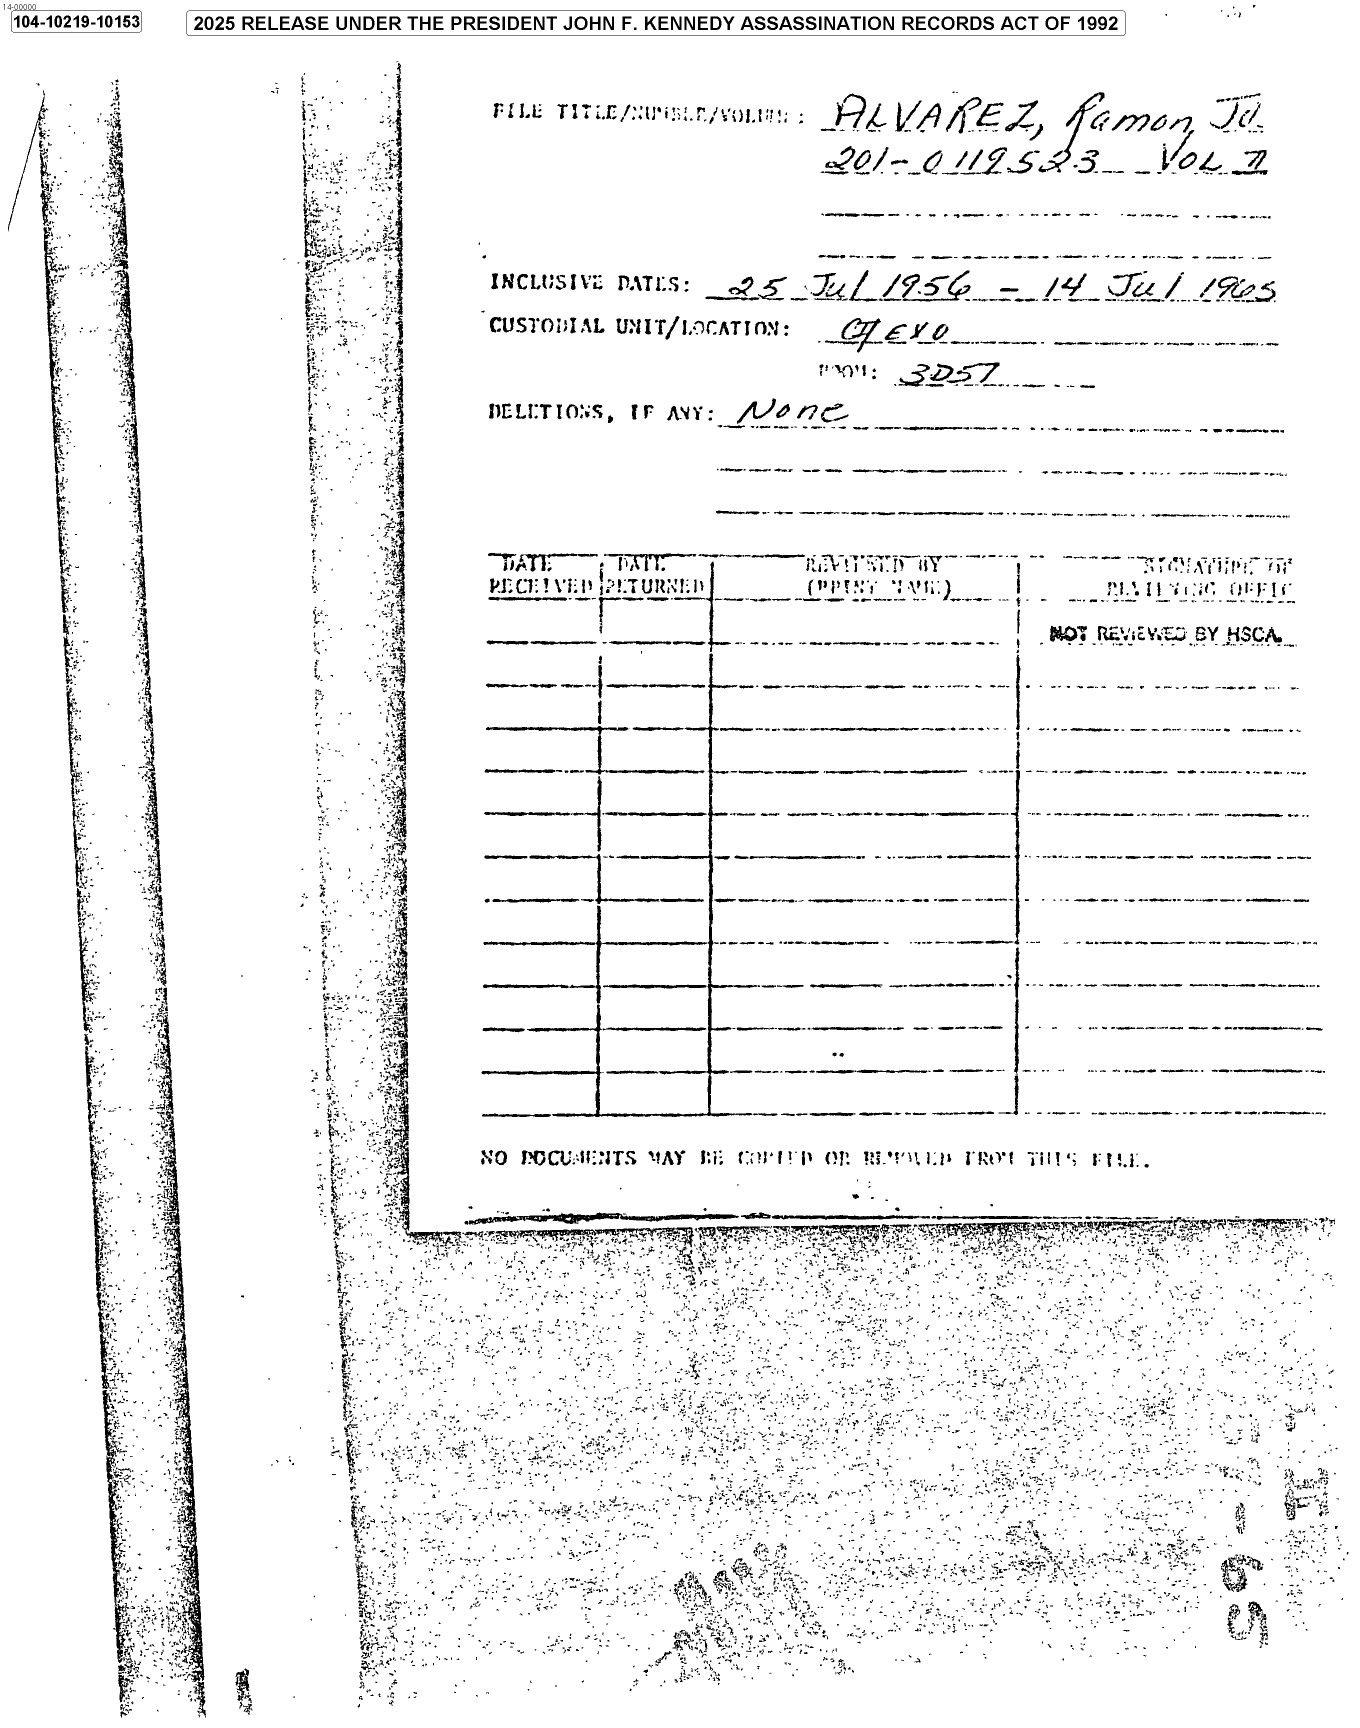 14-00000
104-10219-10153
2025 RELEASE UNDER THE PRESIDENT JOHN F. KENNEDY ASSASSINATION RECORDS ACT OF 1992
FILE TITLE/NUMBER/VOLUME: ALVAREZ, Ramon, Jd.
201-0119523 VOL II
INCLUSIVE DATES: 25 Jul 1956 - 14 Jul 1965
CUSTODIAL UNIT/LOCATION: CI/EXO
ROOM: 3D57
DELETIONS, IF ANY: None
DATE RECEIVED
DATE RETURNED
REVIEWED BY (PRINT NAME)
SIGNATURE OF REVIEWING OFFIC
NOT REVIEWED BY HSCA.
NO DOCUMENTS MAY BE COPIED OR REMOVED FROM THIS FILE.